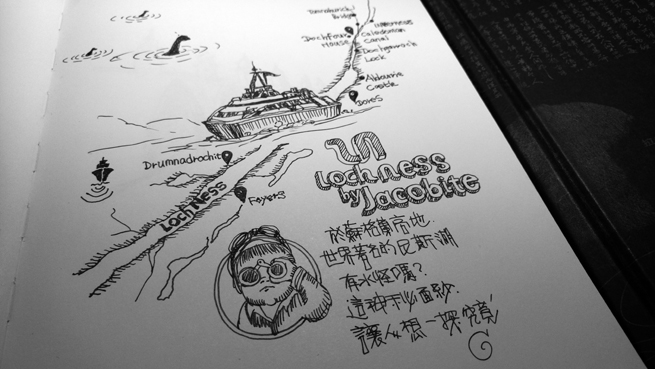 Tomnahurich
Bridge
Inverness
Caledonian
Canal
Dochfour
House
Dochgarroch
Lock
Aldourie
Castle
Dores
Drumnadrochit
LOCH NESS
Foyers
Loch ness
by Jacobite
於蘇格蘭高地.
世界著名的尼斯湖
有水怪嗎?
這神秘面紗.
讓人想一探究竟!